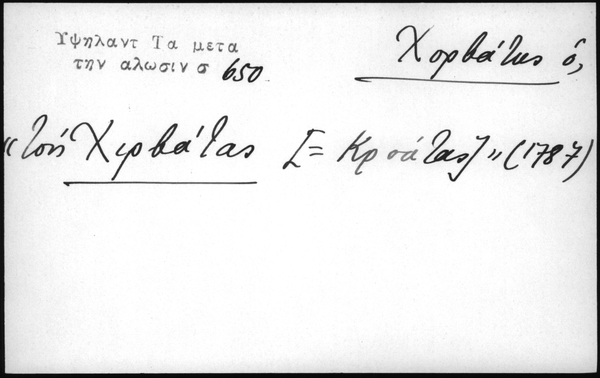 Υψηλαντ Τα μετα
την αλωσιν σ 650.
Χορβάτης ὁ,
«τοὺς Χιρβάτας [= Κροάτας]» (1787)